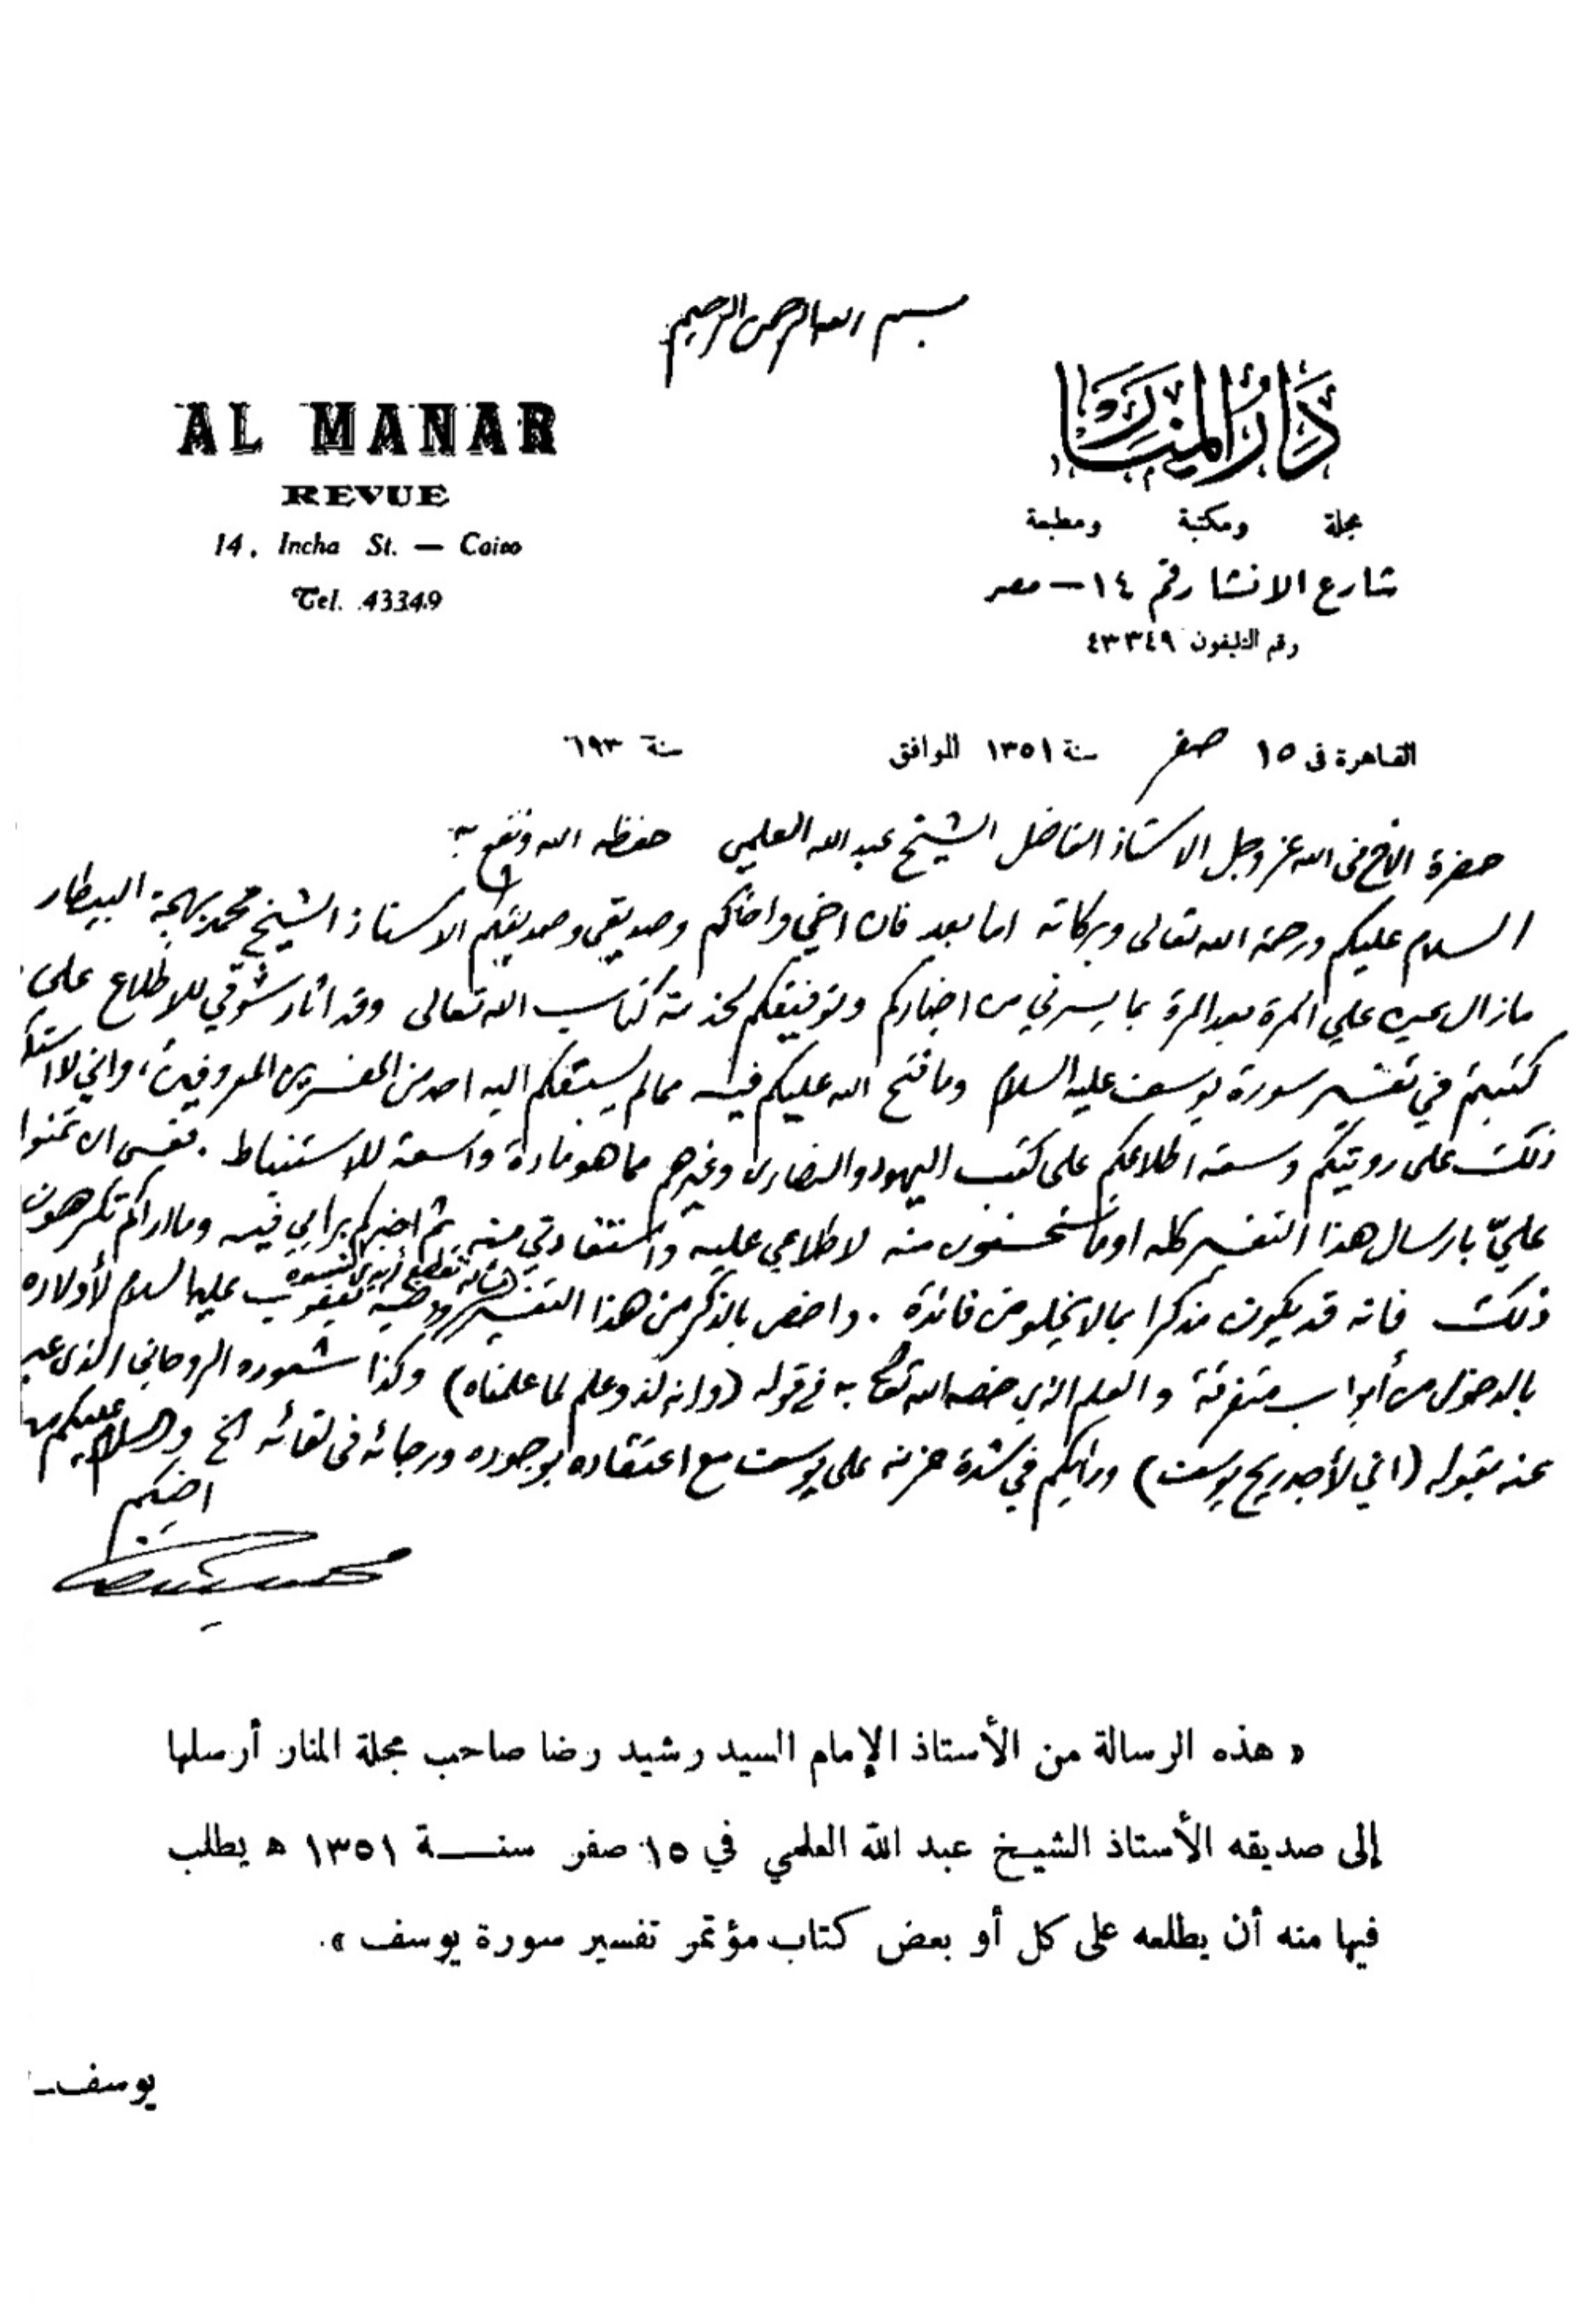 بسم الله الرحمن الرحيم
AL MANAR
REVUE
14, Incha St. — Cairo
Tel. 43349
دَارُ المنَار
مجلة ومكتبة ومطبعة
شارع الانشا رقم ١٤ — مصر
رقم التليفون ٤٣٣٤٩
القاهرة فى ١٥ صفر سنة ١٣٥١ الموافق سنة ١٩٣
حضرة الأخ في الله عز وجل الاستاذ الفاضل الشيخ عبد الله العلمي حفظه الله ونفع به
السلام عليكم ورحمة الله تعالى وبركاته اما بعد فان اخي واخاكم وصديقي وصديقكم الاستاذ الشيخ محمد بهجة البيطار
ما زال علي المرة بعد المرة بما يسرني من اخباركم وتوفيقكم لخدمة كتاب الله تعالى وقد اثار شوقي للاطلاع على
كتبتم في تفسير سورة يوسف عليه السلام وما فتح الله عليكم فيه مما لم يسبقكم اليه احد من المفسرين المعروفين، واني لا
ذلك على رويتكم وسعة اطلاعكم على كتب اليهود والنصارى وغيرهم مما هو مادة واسعة للاستنباط. فعسى ان تمنوا
عليّ بارسال هذا التفسير كله او ما تستحسنون منه لاطلاعي عليه واستفادتي منه ثم اخبركم برايي فيه وما اراكم تكرهون
ذلك فانه قد يكون مذكرا بما لا يخلو من فائدة. واخص بالذكر من هذا التفسير مسألة تقطيع أيدي النسوة ووصية يعقوب عليه السلام لأولاده
بالدخول من أبواب متفرقة والعلم الذي خصه الله تعالى به في قوله (وانه لذو علم لما علمناه) وكذا شعوره الروحاني الذي عبر
عنه بقوله (اني لأجد ريح يوسف) ورأيكم في شدة حزنه على يوسف مع اعتقاده بوجوده ورجائه في لقائه الخ والسلام عليكم من
اخيكم
محمد رشيد رضا
« هذه الرسالة من الأستاذ الإمام السيد رشيد رضا صاحب مجلة المنار أرسلها
إلى صديقه الأستاذ الشيخ عبد الله العلمي في ١٥ صفر سنـــة ١٣٥١ ه يطلب
فيها منه أن يطلعه على كل أو بعض كتاب مؤتمر تفسير سورة يوسف ».
يوسف ـ